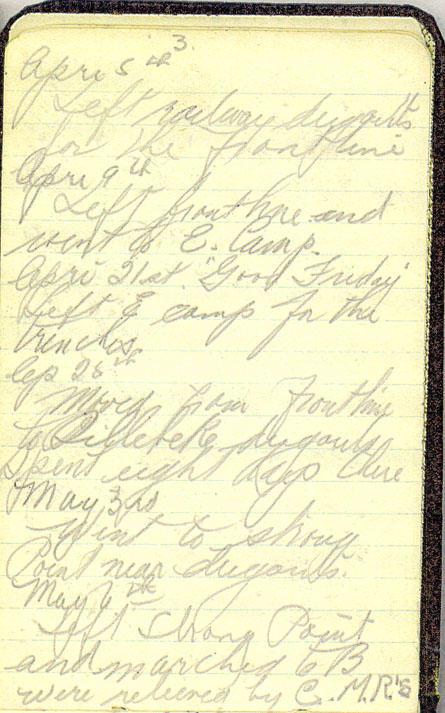 3
Apri 5th
Left railway dugouts
for the frontline
Apri 9th
Left frontline and
went to E. Camp.
Apri 21st. "Good Friday"
Left E camp for the
trenches
Ap 28th
Moved from frontline
to dugouts
Spent eight days there
May 3rd
Went to strong
Point near dugouts.
May 6th
Left Strong Point
and marched to B
were relieved by C.M.R's